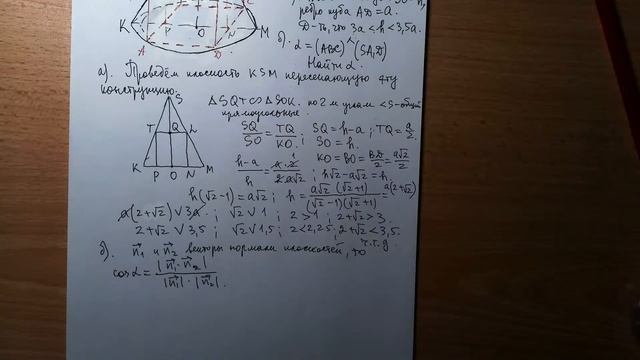 ребро куба AD=a.
Д-ть, что 3a<h<3,5a.
б). α=(ABC)^(SA,D)
Найти α.
K P O M
A D
а). Проведём плоскость KSM пересекающую эту
конструкцию.
S
T Q L
K P O N M
ΔSQT∞ΔSOK. по 2м углам <S-общий
прямоугольные.
SQ/SO = TQ/KO. ; SQ=h-a ; TQ=a/2.
SO=h.
KO=BO=BD/2=a√2/2
(h-a)/h = a·2/2a√2 ; h√2-a√2=h.
h(√2-1)=a√2 ; h=a√2(√2+1)/(√2-1)(√2+1)=a(2+√2)
a(2+√2) V 3a. ; √2 V 1 ; 2>1 ; 2+√2>3.
2+√2 V 3,5 ; √2 V 1,5 ; 2<2,25 ; 2+√2<3,5.
ч.т.д.
б). n₁ и n₂ векторы нормали плоскостей, то
cosα=|n₁·n₂|/|n₁|·|n₂|.